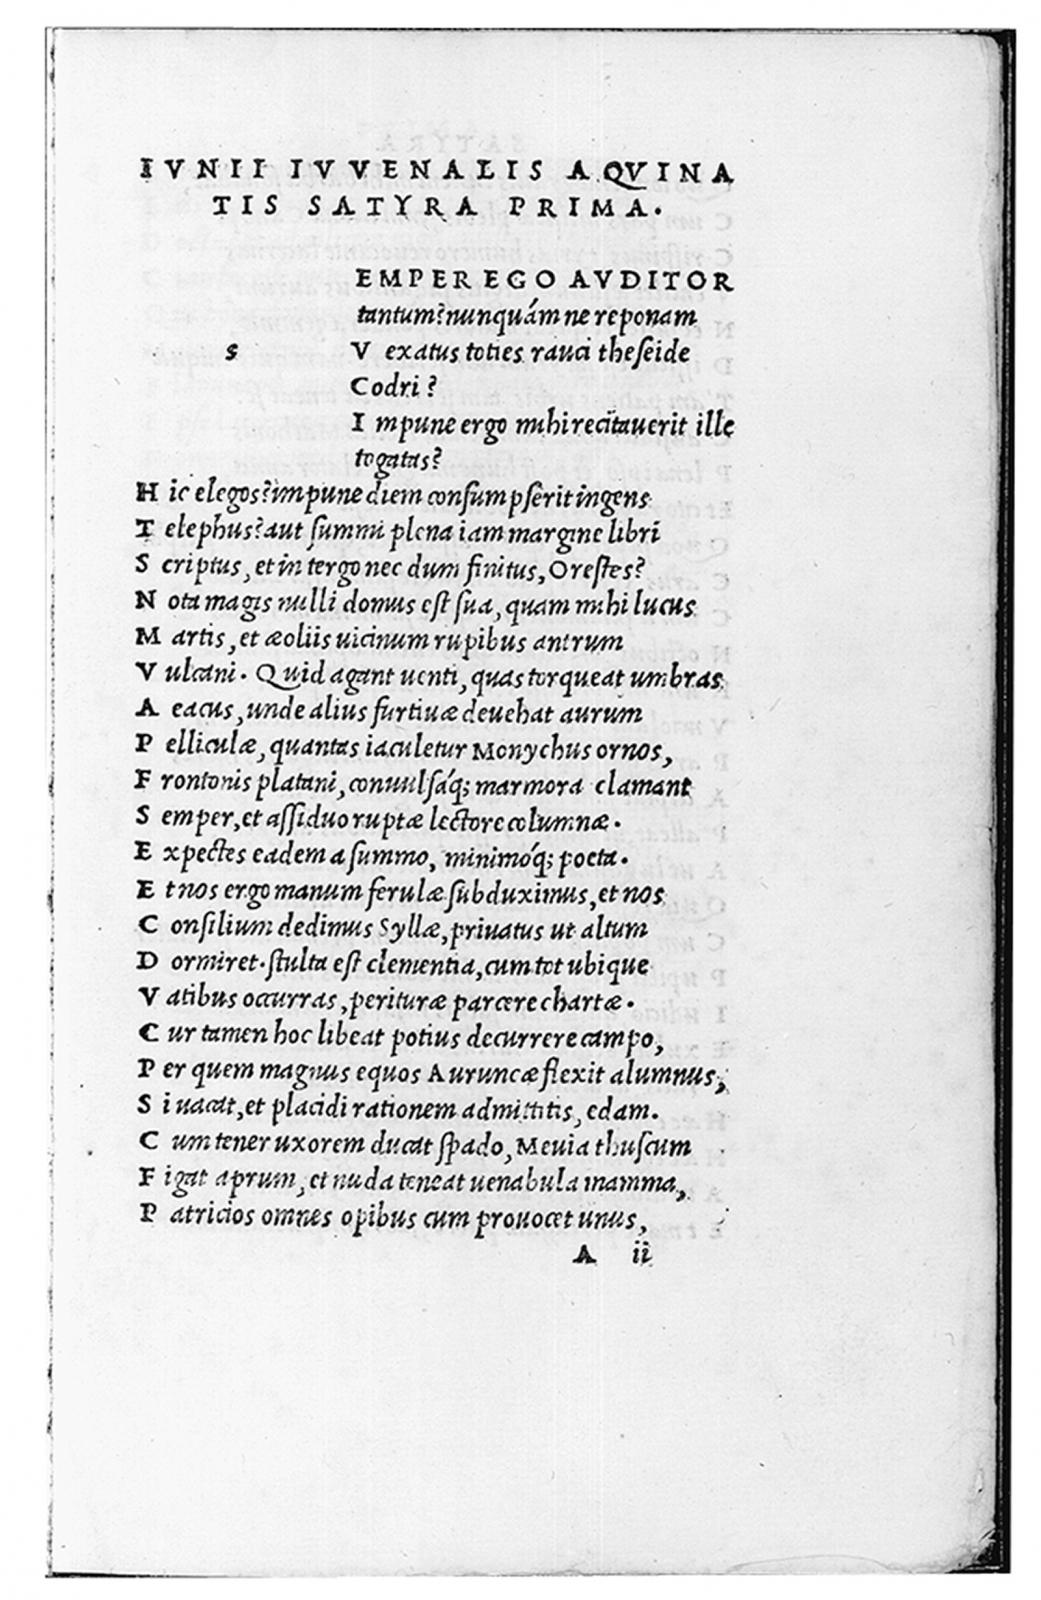 IVNII IVVENALIS AQVINA
TIS SATYRA PRIMA.
EMPER EGO AVDITOR
tantum? nunquám ne reponam
s V exatus toties rauci theſeide
Codri?
I mpune ergo mihi recitauerit ille
togatas?
H ic elegos? impune diem conſumpſerit ingens
T elephus? aut ſummi plena iam margine libri
S criptus, et in tergo nec dum finitus, Oreſtes?
N ota magis nulli domus eſt ſua, quam mihi lucus
M artis, et æoliis uicinum rupibus antrum
V ulcani. Quid agant uenti, quas torqueat umbras
A eacus, unde alius furtiuæ deuehat aurum
P elliculæ, quantas iaculetur Monychus ornos,
F rontonis platani, conuulſáq; marmora clamant
S emper, et aſſiduo ruptæ lectore columnæ.
E xpectes eadem a ſummo, minimóq; poeta.
E t nos ergo manum ferulæ ſubduximus, et nos
C onſilium dedimus Syllæ, priuatus ut altum
D ormiret. ſtulta eſt clementia, cum tot ubique
V atibus occurras, perituræ parcere chartæ.
C ur tamen hoc libeat potius decurrere campo,
P er quem magnus equos Auruncæ flexit alumnus,
S i uacat, et placidi rationem admittitis, edam.
C um tener uxorem ducat ſpado, Meuia thuſcum
F igat aprum, et nuda teneat uenabula mamma,
P atricios omnes opibus cum prouocet unus,
A ii